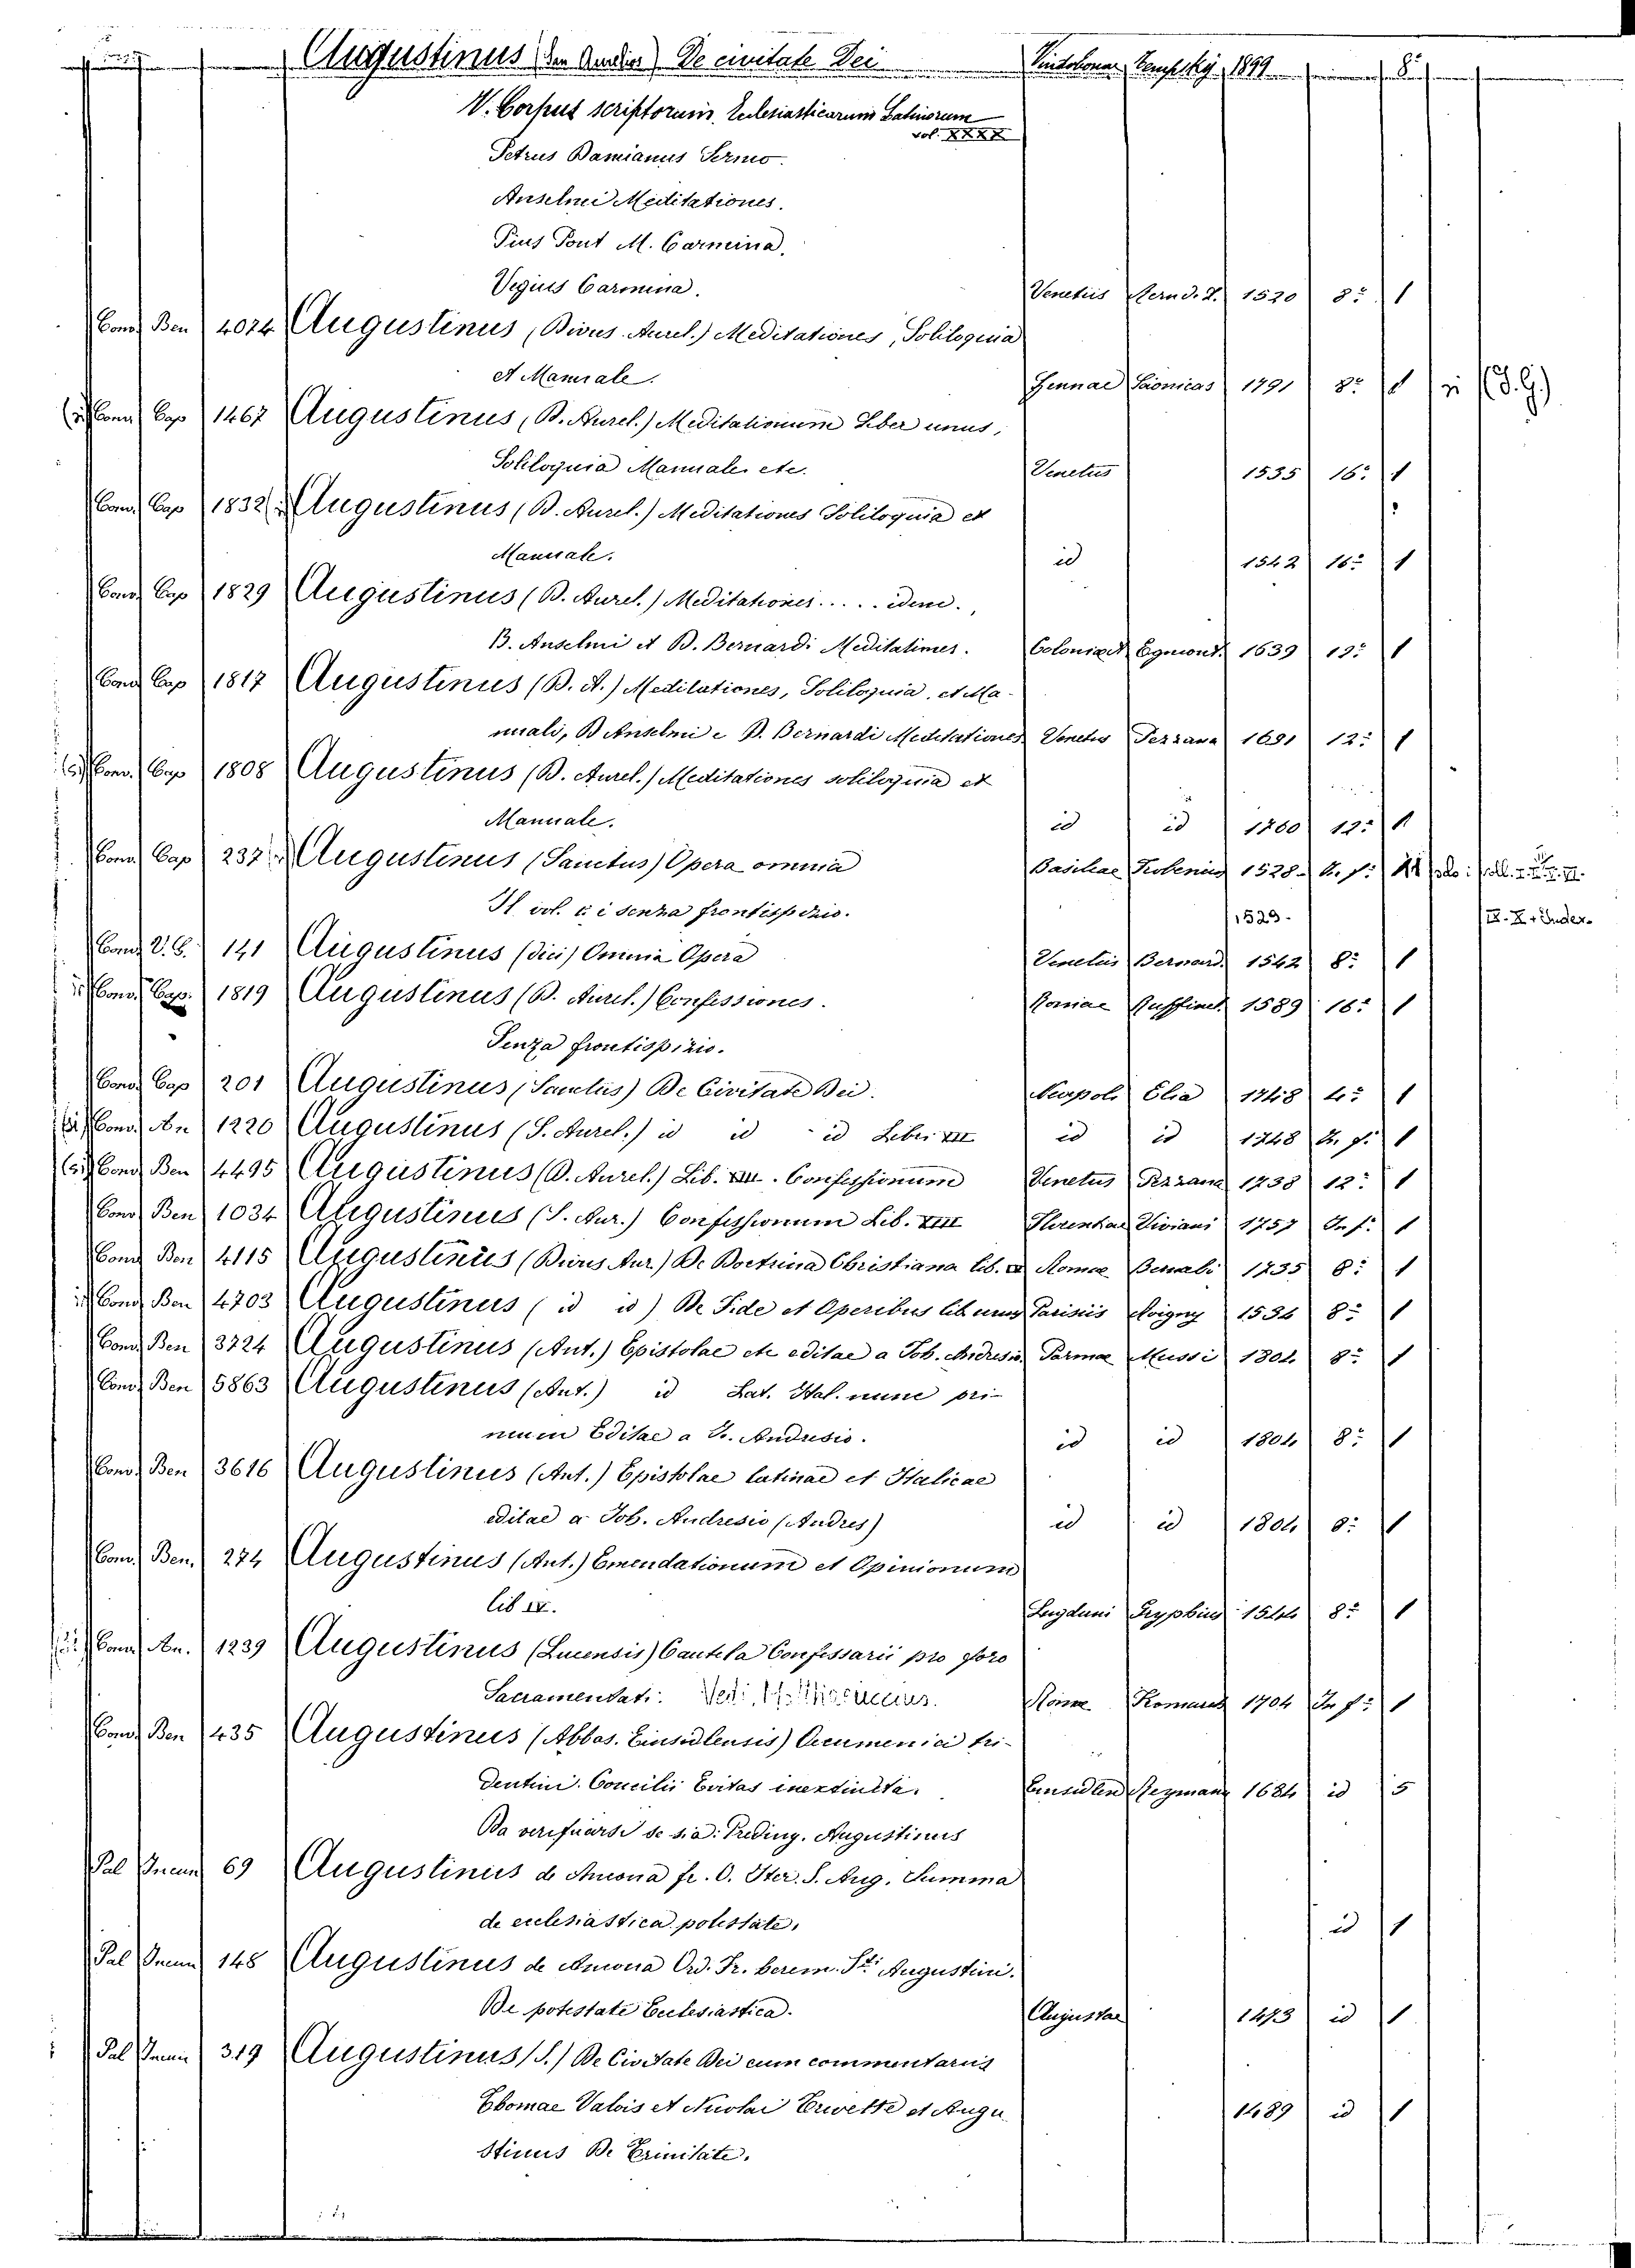 Augustinus De civitate Dei Vindobonae Tempsky 1899 8º
V. Corpus scriptorum Ecclesiasticarum Latinorum
vol. XXXX
Petrus Damianus Sermo.
Anselmi Meditationes.
Pius Pont M. Carmina.
Vegius Carmina. Venetiis 1520 8º 1
Conv. Ben 4074 Augustinus (Divus Aurel.) Meditationes, Soliloquia
et Manuale. 1791 8º 1 (S.G.)
Conv. Cap 1467 Augustinus (B. Aurel.) Meditationum Liber unus,
Soliloquia Manuale etc. Venetiis 1535 16º 1
Conv. Cap 1832 Augustinus (B. Aurel.) Meditationes Soliloquia et
Manuale. id 1542 16º 1
Conv. Cap 1829 Augustinus (B. Aurel.) Meditationes ..... idem.
B. Anselmi et B. Bernardi Meditationes. Egmond. 1639 12º 1
Conv. Cap 1817 Augustinus (B. A.) Meditationes, Soliloquia, et Ma-
nuali, B Anselmi e B. Bernardi Meditationes Venetiis Pezzana 1691 12º 1
Conv. Cap 1808 Augustinus (B. Aurel.) Meditationes soliloquia et
Manuale. id id 1760 12º 1
Conv. Cap 237 Augustinus (Sanctus) Opera omnia Basileae Frobenius 1528-
senza frontispizio. 1529. + Index.
Conv. V.E. 141 Augustinus (divi) Omnia Opera Venetiis Bernard. 1542 8º 1
Conv. Cap. 1819 Augustinus (B. Aurel.) Confessiones. Romae Ruffinel. 1589 16º 1
Senza frontispizio.
Conv. Cap 201 Augustinus (Sanctus) De Civitate Dei. Neapoli Elia 1748 4º 1
Conv. An 1220 Augustinus (S. Aurel.) id id id Libri XII id id 1748 1
Conv. Ben 4495 Augustinus (D. Aurel.) Lib. XIII. Confessionum Venetiis Pezzana 1738 12º 1
Conv. Ben 1034 Augustinus (S. Aur.) Confessionum Lib. XIII Florentiae Viviani 1757 In f: 1
Conv. Ben 4115 Augustinus (Divus Aur.) De Doctrina Christiana lib. Romae 1735 8º 1
Conv. Ben 4703 Augustinus (id id) De Fide et Operibus lib unus Parisiis 1534 8º 1
Conv. Ben 3724 Augustinus (Ant.) Epistolae etc editae a Job. Andresio. Parmae Mussi 1804 8º 1
Conv. Ben 5863 Augustinus (Ant.) id Lat. Ital. nunc pri-
mum Editae a Andresio. id id 1804 8º 1
Conv. Ben 3616 Augustinus (Ant.) Epistolae latinae et Italicae
editae a Job. Andresio (Andres) id id 1804 8º 1
Conv. Ben. 274 Augustinus (Ant.) Emendationum et Opinionum
lib IV. Lugduni Gryphius 1544 8º 1
Conv. An. 1239 Augustinus (Lucensis) Cautela Confessarii pro foro
Sacramentati. Vedi, Romae Komarek 1704 In f: 1
Conv. Ben 435 Augustinus (Abbas. Einsidlensis) Oecumenici tri-
dentini Concilii Veritas inextincta. Einsidlen 1684 id 5
Da verificarsi se sia: Reding. Augustinus
Pal Incun 69 Augustinus de Ancona fr. O. S. Aug. Summa
de ecclesiastica potestate. id 1
Pal Incun 148 Augustinus de Ancona Ord. Fr. herem. Sti Augustini.
De potestate Ecclesiastica. Augustae 1473 id 1
Pal Incun 319 Augustinus (S.) De Civitate Dei cum commentariis
Thomae Valois et Nicolai Trivetti et Augu
stinus De Trinitate. 1489 id 1